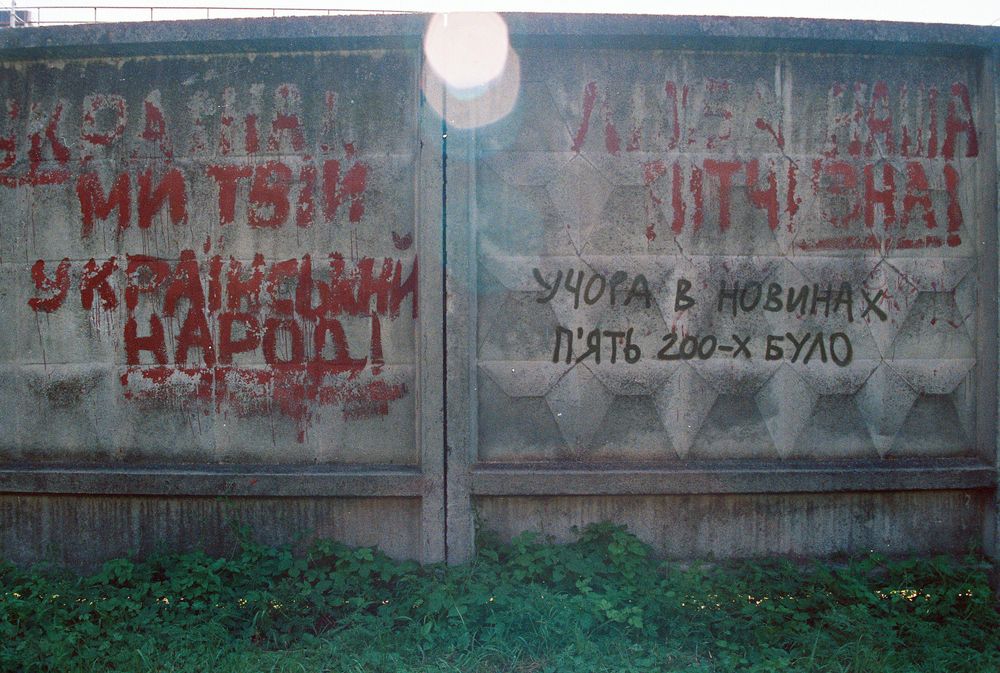 УКРАЇНА!
МИ ТВІЙ
УКРАЇНСЬКИЙ
НАРОД!
НАША
ВІТЧИЗНА!
УЧОРА В НОВИНАХ
П'ЯТЬ 200-Х БУЛО